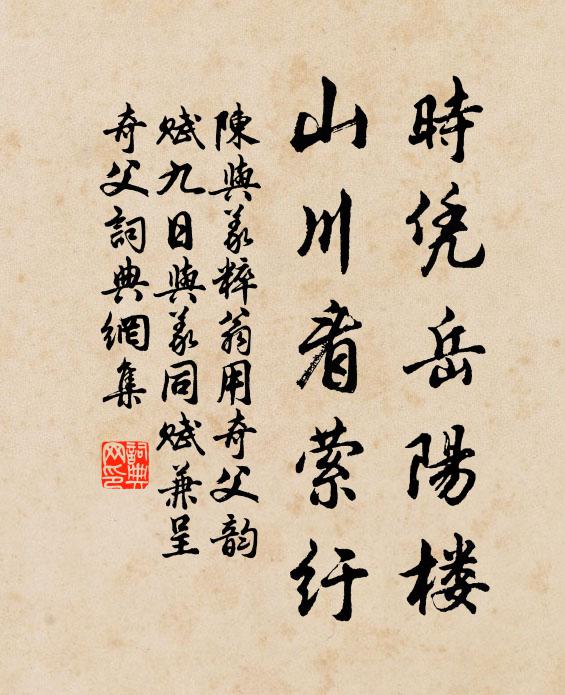 時凭岳陽楼
山川看萦纡
陳與義粹翁用奇父韵
赋九日與義同赋兼呈
奇父詞典網集
詞典网印